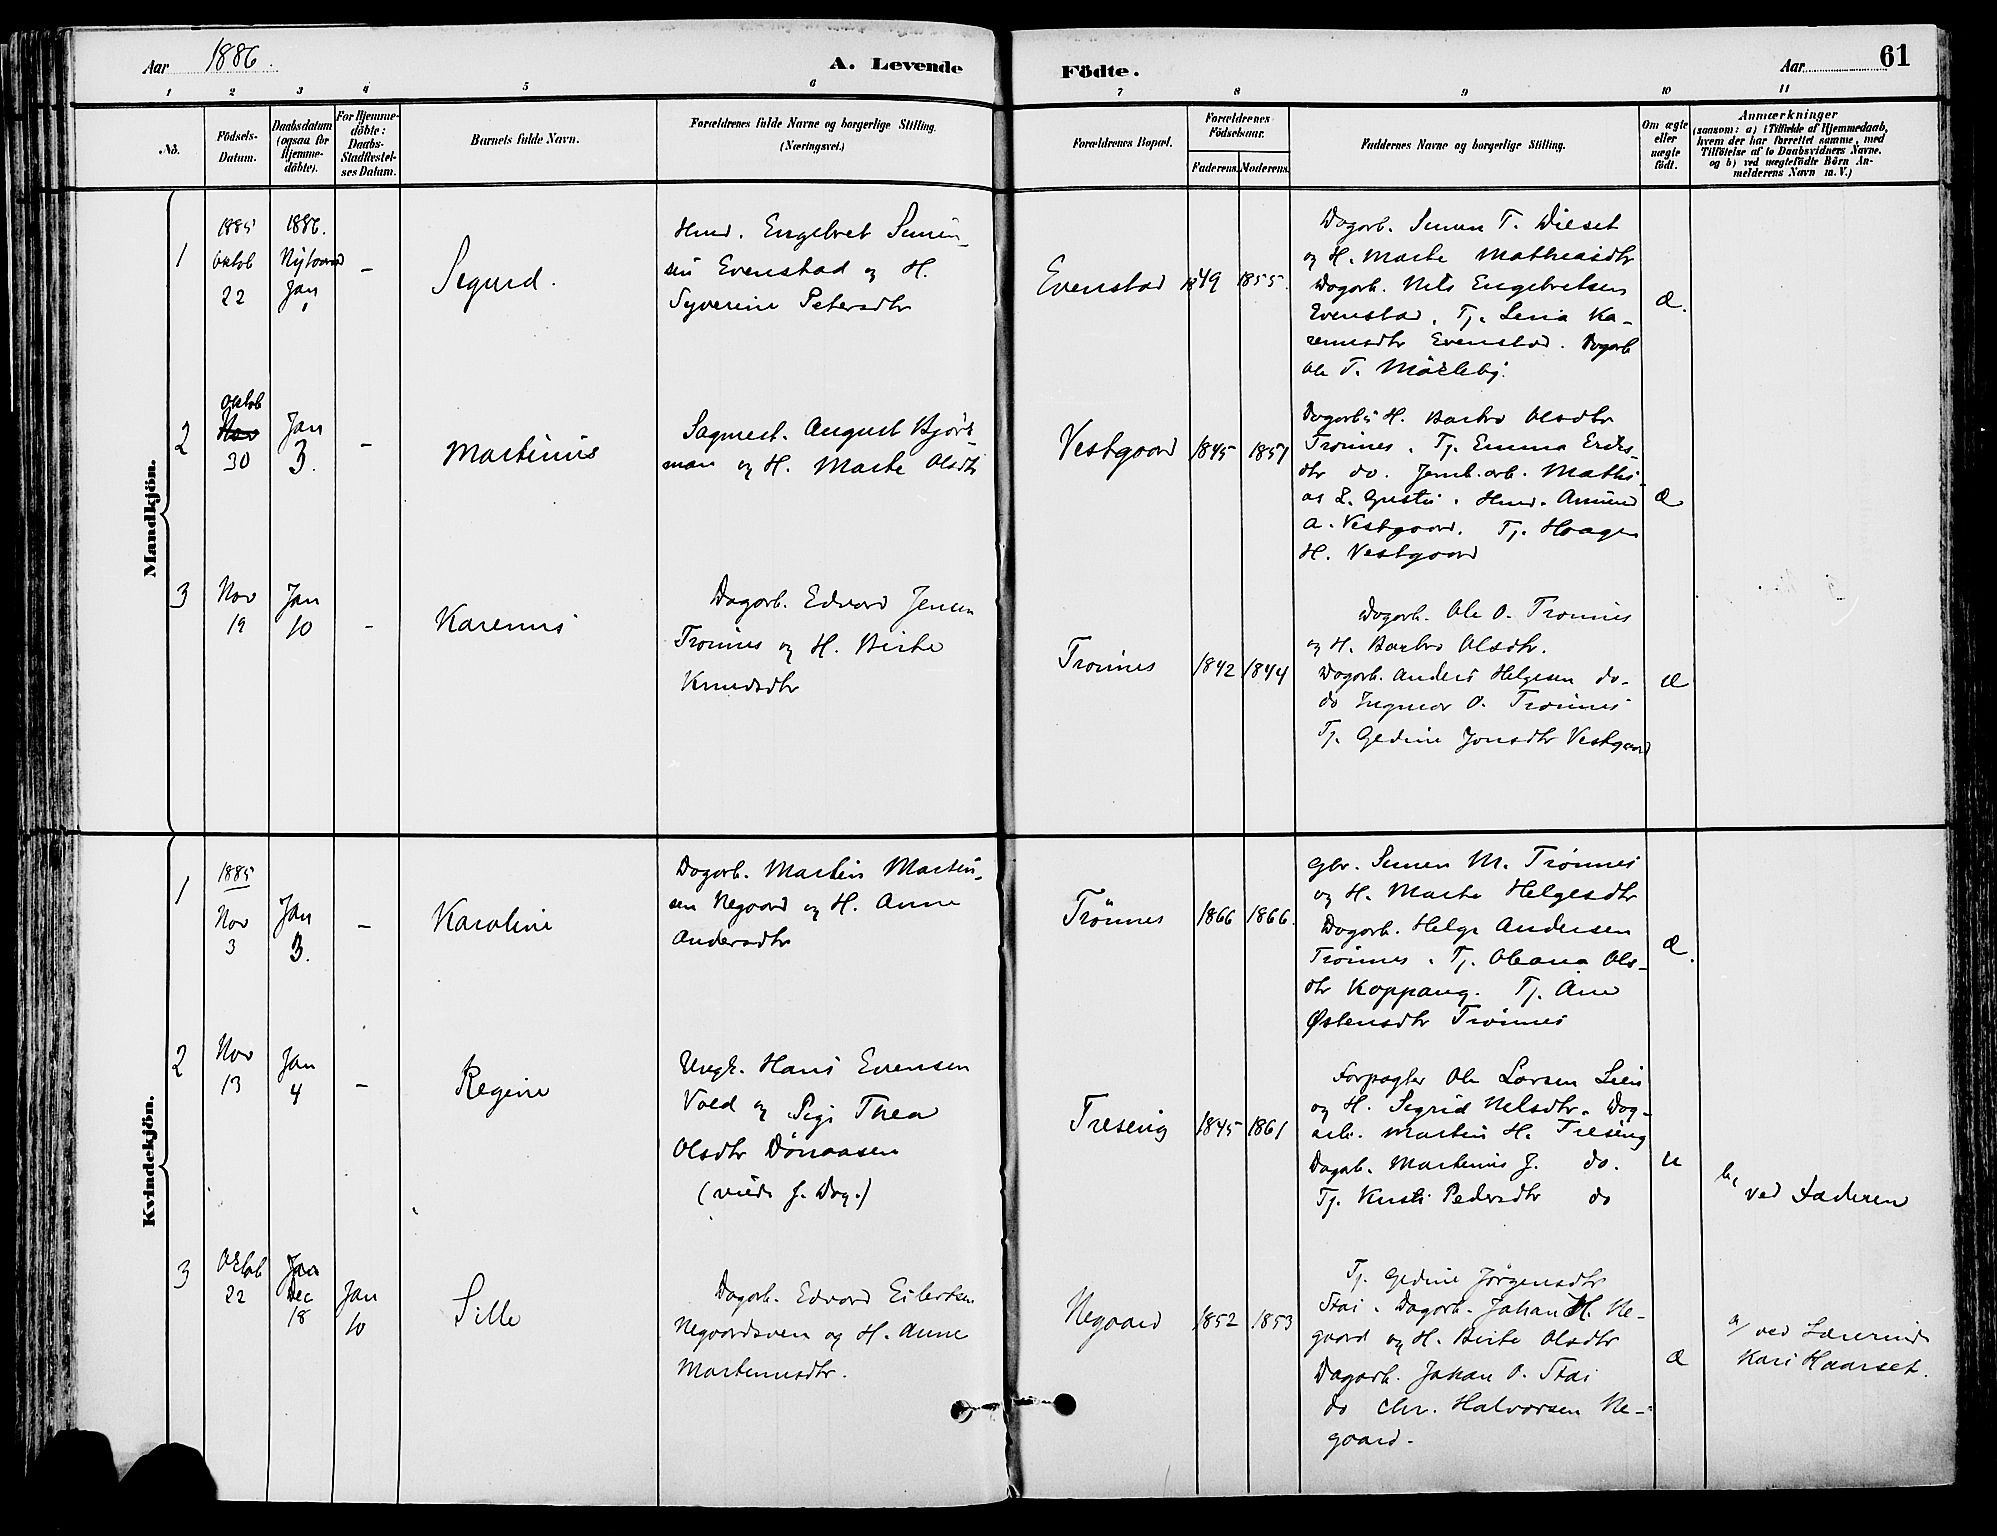 Aar 1886.
A. Levende Födte.
Aar 61
1 2 3 4 5 6 7 8 9 10 11
No.
Födsels-Datum.
Daabsdatum (ogsaa for Hjemmedöbte).
For Hjemmedöbte: Daabs-Stadfæstelses Datum.
Barnets fulde Navn.
Forældrenes fulde Navne og borgerlige Stilling. (Næringsvei.)
Forældrenes Bopæl.
Forældrenes Födselsaar.
Faderens. Moderens.
Faddernes Navne og borgerlige Stilling.
Om ægte eller uægte födt.
Anmærkninger
(saasom: a) i Tilfælde af Hjemmedaab, hvem der har forrettet samme, med Tilföielse af to Daabsvidners Navne, og b) ved uægtefödte Börn Anmelderens Navn m. V.)
Mandkjön.
1
1885 oktob 22
1886. Nytaarsd Jan 1
–
Sigurd.
Hmd. Engebret Simen-
sen Evenstad og H.
Syverine Petersdtr
Evenstad
1849 1855.
Dagarb. Simen T. Dieset
og H. Marte Mathiasdtr
Dagarb. Nils Engebretsen
Evenstad. Tj. Lina Ka-
renusdtr Evenstad. Dagarb
Ole T. Mörkeby.
Æ.
2
oktob 30
Jan 3.
–
Martinus
Sagmest. August Bjørk-
man og H. Marte Olsdtr
Vestgaard
1845 1857
Dagarbs H. Barbro Olsdtr
Trønnes. Tj. Emma Eriks-
dtr do. Jernb.arb. Mathi-
as L. Hmd. Amund
A. Vestgaard. Tj. Haagen
H. Vestgaard
Æ
3
Nov 19
Jan 10
–
Karenus
Dagarb. Edvard Jensen
Trønnes og H. Birte
Knudsdtr
Trønnes
1842 1844
Dagarb. Ole O. Trønnes
og H. Barbro Olsdtr.
Dagarb. Anders Helgesen do.
do Ingmar O. Trønnes
Tj. Gedine Jonsdtr Vestgaard
Æ
Kvindekjön.
1
1885 Nov 3
Jan 3.
–
Karoline
Dagarb. Martin Martin-
sen Negaard og H. Anne
Andersdtr
Trønnes
1866 1866.
Gbr. Simen M. Trønnes
og H. Marte Helgesdtr
Dagarb. Helge Andersen
Trønnes. Tj. Oleana Ols-
dtr Koppang. Tj. Ane
Østensdtr Trønnes
Æ.
2
Nov 13
Jan 4
–
Regine
Ungk. Hans Evensen
Vold og Pige Thea
Olsdtr Dønaasen
Treseng
1845 1861
Forpagter Ole Larsen Lien
og H. Sigrid Nelsdtr. Dag-
arb. Martin H. Treseng
Dagarb. Martinus J. do.
Tj. Kristi Pedersdtr do
u
b, ved Faderen
3
Oktob 22
Dec 18
Jan 10
Sille
Dagarb. Edvard Eilertsen
Negaardsveen og H. Anne
Martinusdtr.
Negaard
1852 1853
Tj. Gedine Jørgensdtr
Stai. Dagarb. Johan H. Ne-
gaard og H. Birte Olsdtr
Dagarb. Johan O. Stai
do Chr. Halvorsen Ne-
gaard.
Æ
a/ ved Lærerinde
Kari Haarset.